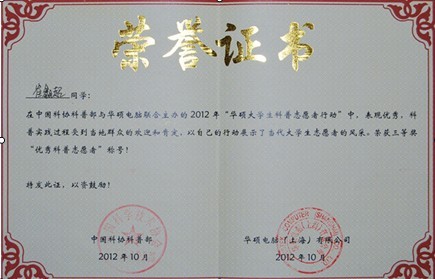 荣誉证书
同学：
在中国科协科普部与华硕电脑联合主办的2012年“华硕大学生科普志愿者行动”中，表现优秀，科
普实践过程受到当地群众的欢迎和肯定，以自己的行动展示了当代大学生志愿者的风采。荣获三等奖
“优秀科普志愿者”称号！
特发此证，以资鼓励！
中国科协科普部
华硕电脑（上海）有限公司
2012年10月
2012年10月